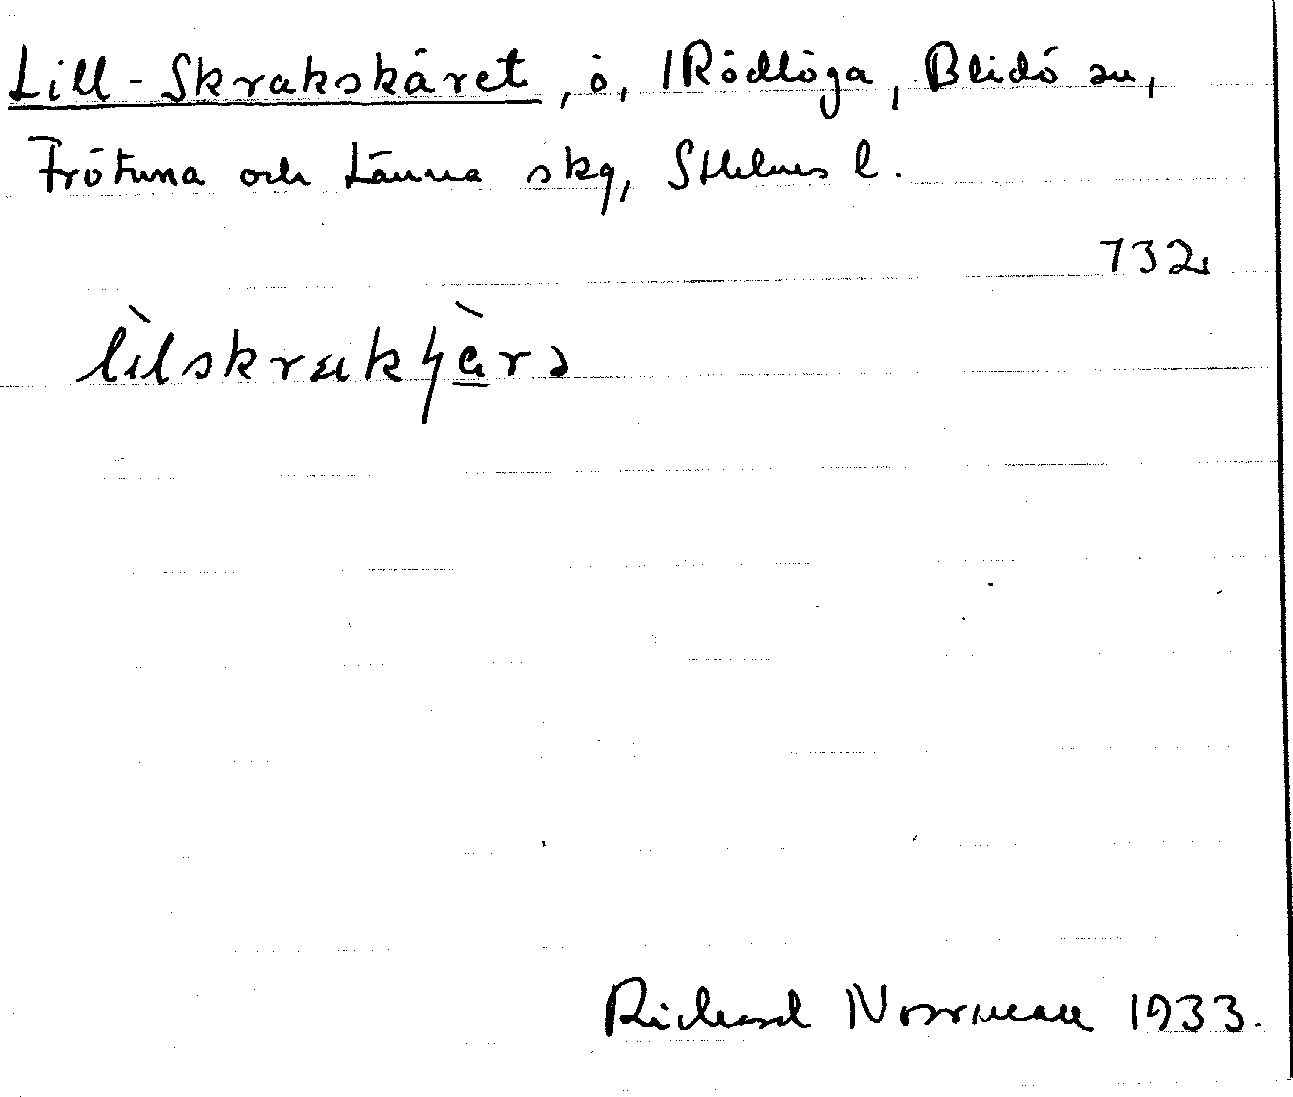 Lill-Skrakskäret, ö, Rödlöga, Blidö sn,
Frötuna och Länna skg, Sthlms l.
732
Richard Norrman 1933.